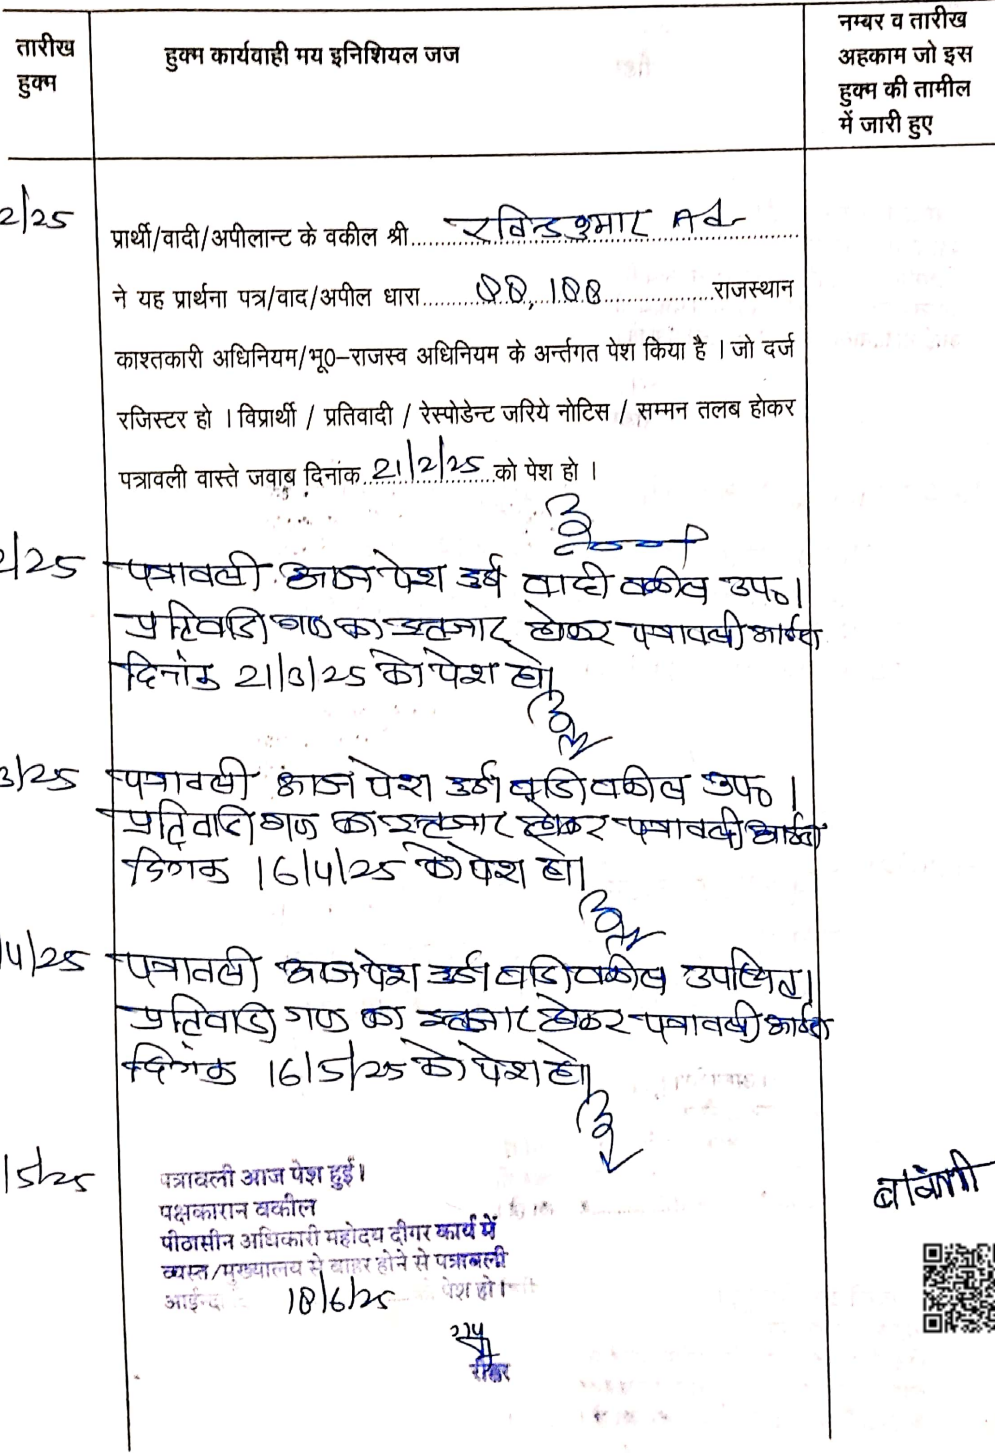 तारीख
हुक्म
हुक्म कार्यवाही मय इनिशियल जज
नम्बर व तारीख
अहकाम जो इस
हुक्म की तामील
में जारी हुए
2/25
प्रार्थी/वादी/अपीलान्ट के वकील श्री रविन्द्र कुमार Ad
ने यह प्रार्थना पत्र/वाद/अपील धारा 88, 188 राजस्थान
काश्तकारी अधिनियम/भू0-राजस्व अधिनियम के अर्न्तगत पेश किया है । जो दर्ज
रजिस्टर हो । विप्रार्थी / प्रतिवादी / रेस्पोडेन्ट जरिये नोटिस / सम्मन तलब होकर
पत्रावली वास्ते जवाब दिनांक 21/2/25 को पेश हो ।
2/25
पत्रावली आज पेश हुई वादी वकील उप0।
प्रतिवादि गण का इन्तजार होकर पत्रावली आईन्दा
दिनांक 21/3/25 को पेश हो।
3/25
पत्रावली आज पेश हुई। वादि वकील उप0 ।
प्रतिवादि गण का इन्तजार होकर पत्रावली आईन्दा
दिनांक 16/4/25 को पेश हो।
/4/25
पत्रावली आज पेश हुई। वादि वकील उपस्थित।
प्रतिवादि गण का इन्तजार होकर पत्रावली आईन्दा
दिनांक 16/5/25 को पेश हो।
/5/25
पत्रावली आज पेश हुई।
पक्षकारान वकील
पीठासीन अधिकारी महोदय दीगर कार्य में
व्यस्त/मुख्यालय से बाहर होने से पत्रावली
आईन्दा 18/6/25 पेश हो।
रीडर